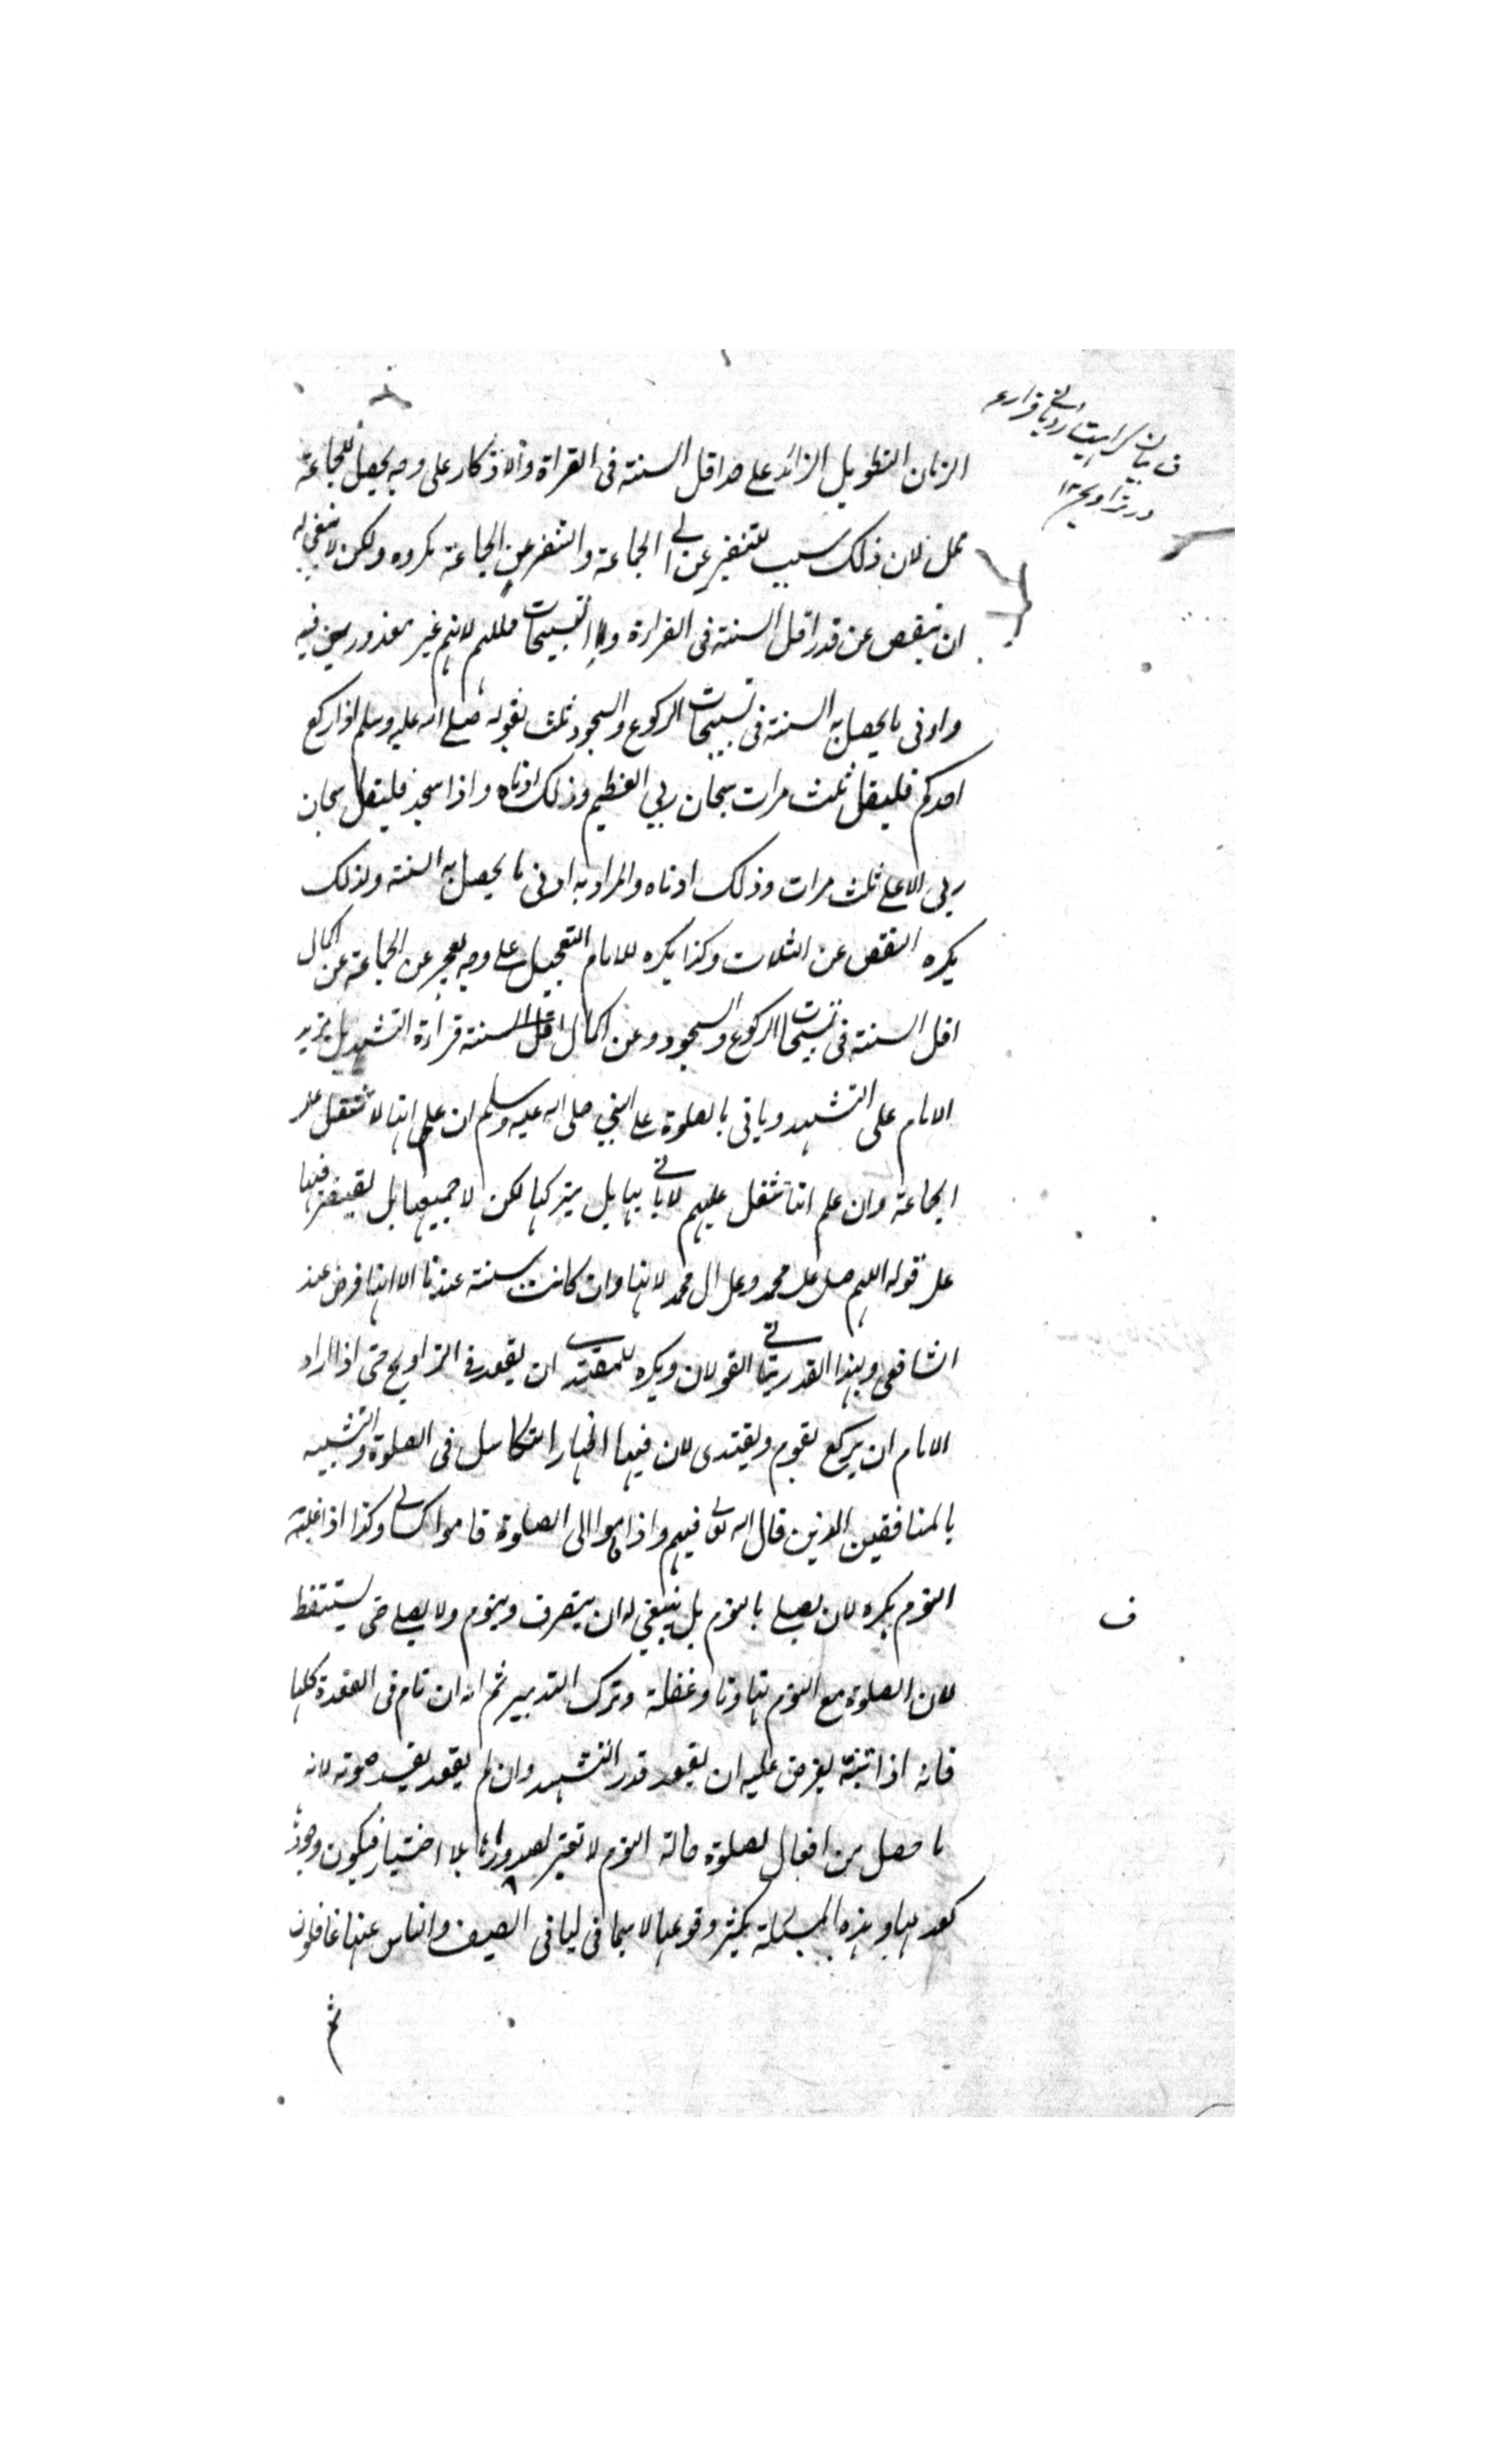 الزمان التطويل الزائد على حد اقل السنة فى القراة والاذكار على وجه يحصل للجماعة
ملل لان ذلك سبب للتنفير عن الجماعة والتنفر عن الجماعة مكروه ولكن لا ينبغى له
ان ينقص عن قدر اقل السنة فى القراءة والتسبيحات لمللهم لانهم غير معذورين فيه
وادنى ما يحصل به السنة فى تسبيحات الركوع والسجود ثلث لقوله صلى الله عليه وسلم اذا ركع
احدكم فليقل ثلث مرات سبحان ربى العظيم وذلك ادناه واذا سجد فليقل سبحان
ربى الاعلى ثلث مرات وذلك ادناه والمراد به ادنى ما يحصل به السنة ولذلك
يكره النقص عن الثلاث وكذا يكره للامام التعجيل على وجه يعجز عن الجماعة عن اكمال
اقل السنة فى تسبيحات الركوع والسجود وعن اكمال اقل السنة قراءة التشهد بل يزيد
الامام على التشهد وياتى بالصلوة على النبى صلى الله عليه وسلم ان علم انها لا تثقل على
الجماعة وان علم انها تثقل عليهم لا ياتى بها بل يتركها لكن لا جميعها بل يقتصر فيها
على قوله اللهم صل على محمد وعلى ال محمد لانها وان كانت سنة عندنا الا انها فرض عند
الشافعى وبهذا القدر يتاتى القولان ويكره للمقتدى ان يقعد فى التراويح حتى اذا اراد
الامام ان يركع يقوم ويقتدى لان فيها اظهار التكاسل فى الصلوة والتشبيه
بالمنافقين الذين قال الله تعالى فيهم واذا قاموا الى الصلوة قاموا كسالى وكذا اذا غلبته
النوم يكره لان يصلى بالنوم بل ينبغى له ان ينصرف وينوم ولا يصلى حتى يستيقظ
لان الصلوة مع النوم تهاونا وغفلة وترك التدبير ثم انه ان نام فى القعدة كلها
فانه اذا تنبه يفرض عليه ان يقعد قدر التشهد وان لم يقعد يفسد صلوته لانه
ما حصل من افعال لصلوة حالة النوم لا تعتبر لصدورها بلا اختيار فيكون وجودها
كعدمها وهذه المسئلة يكثر وقوعها لا سيما فى ليالى الصيف والناس عنها غافلون
ثم
ف